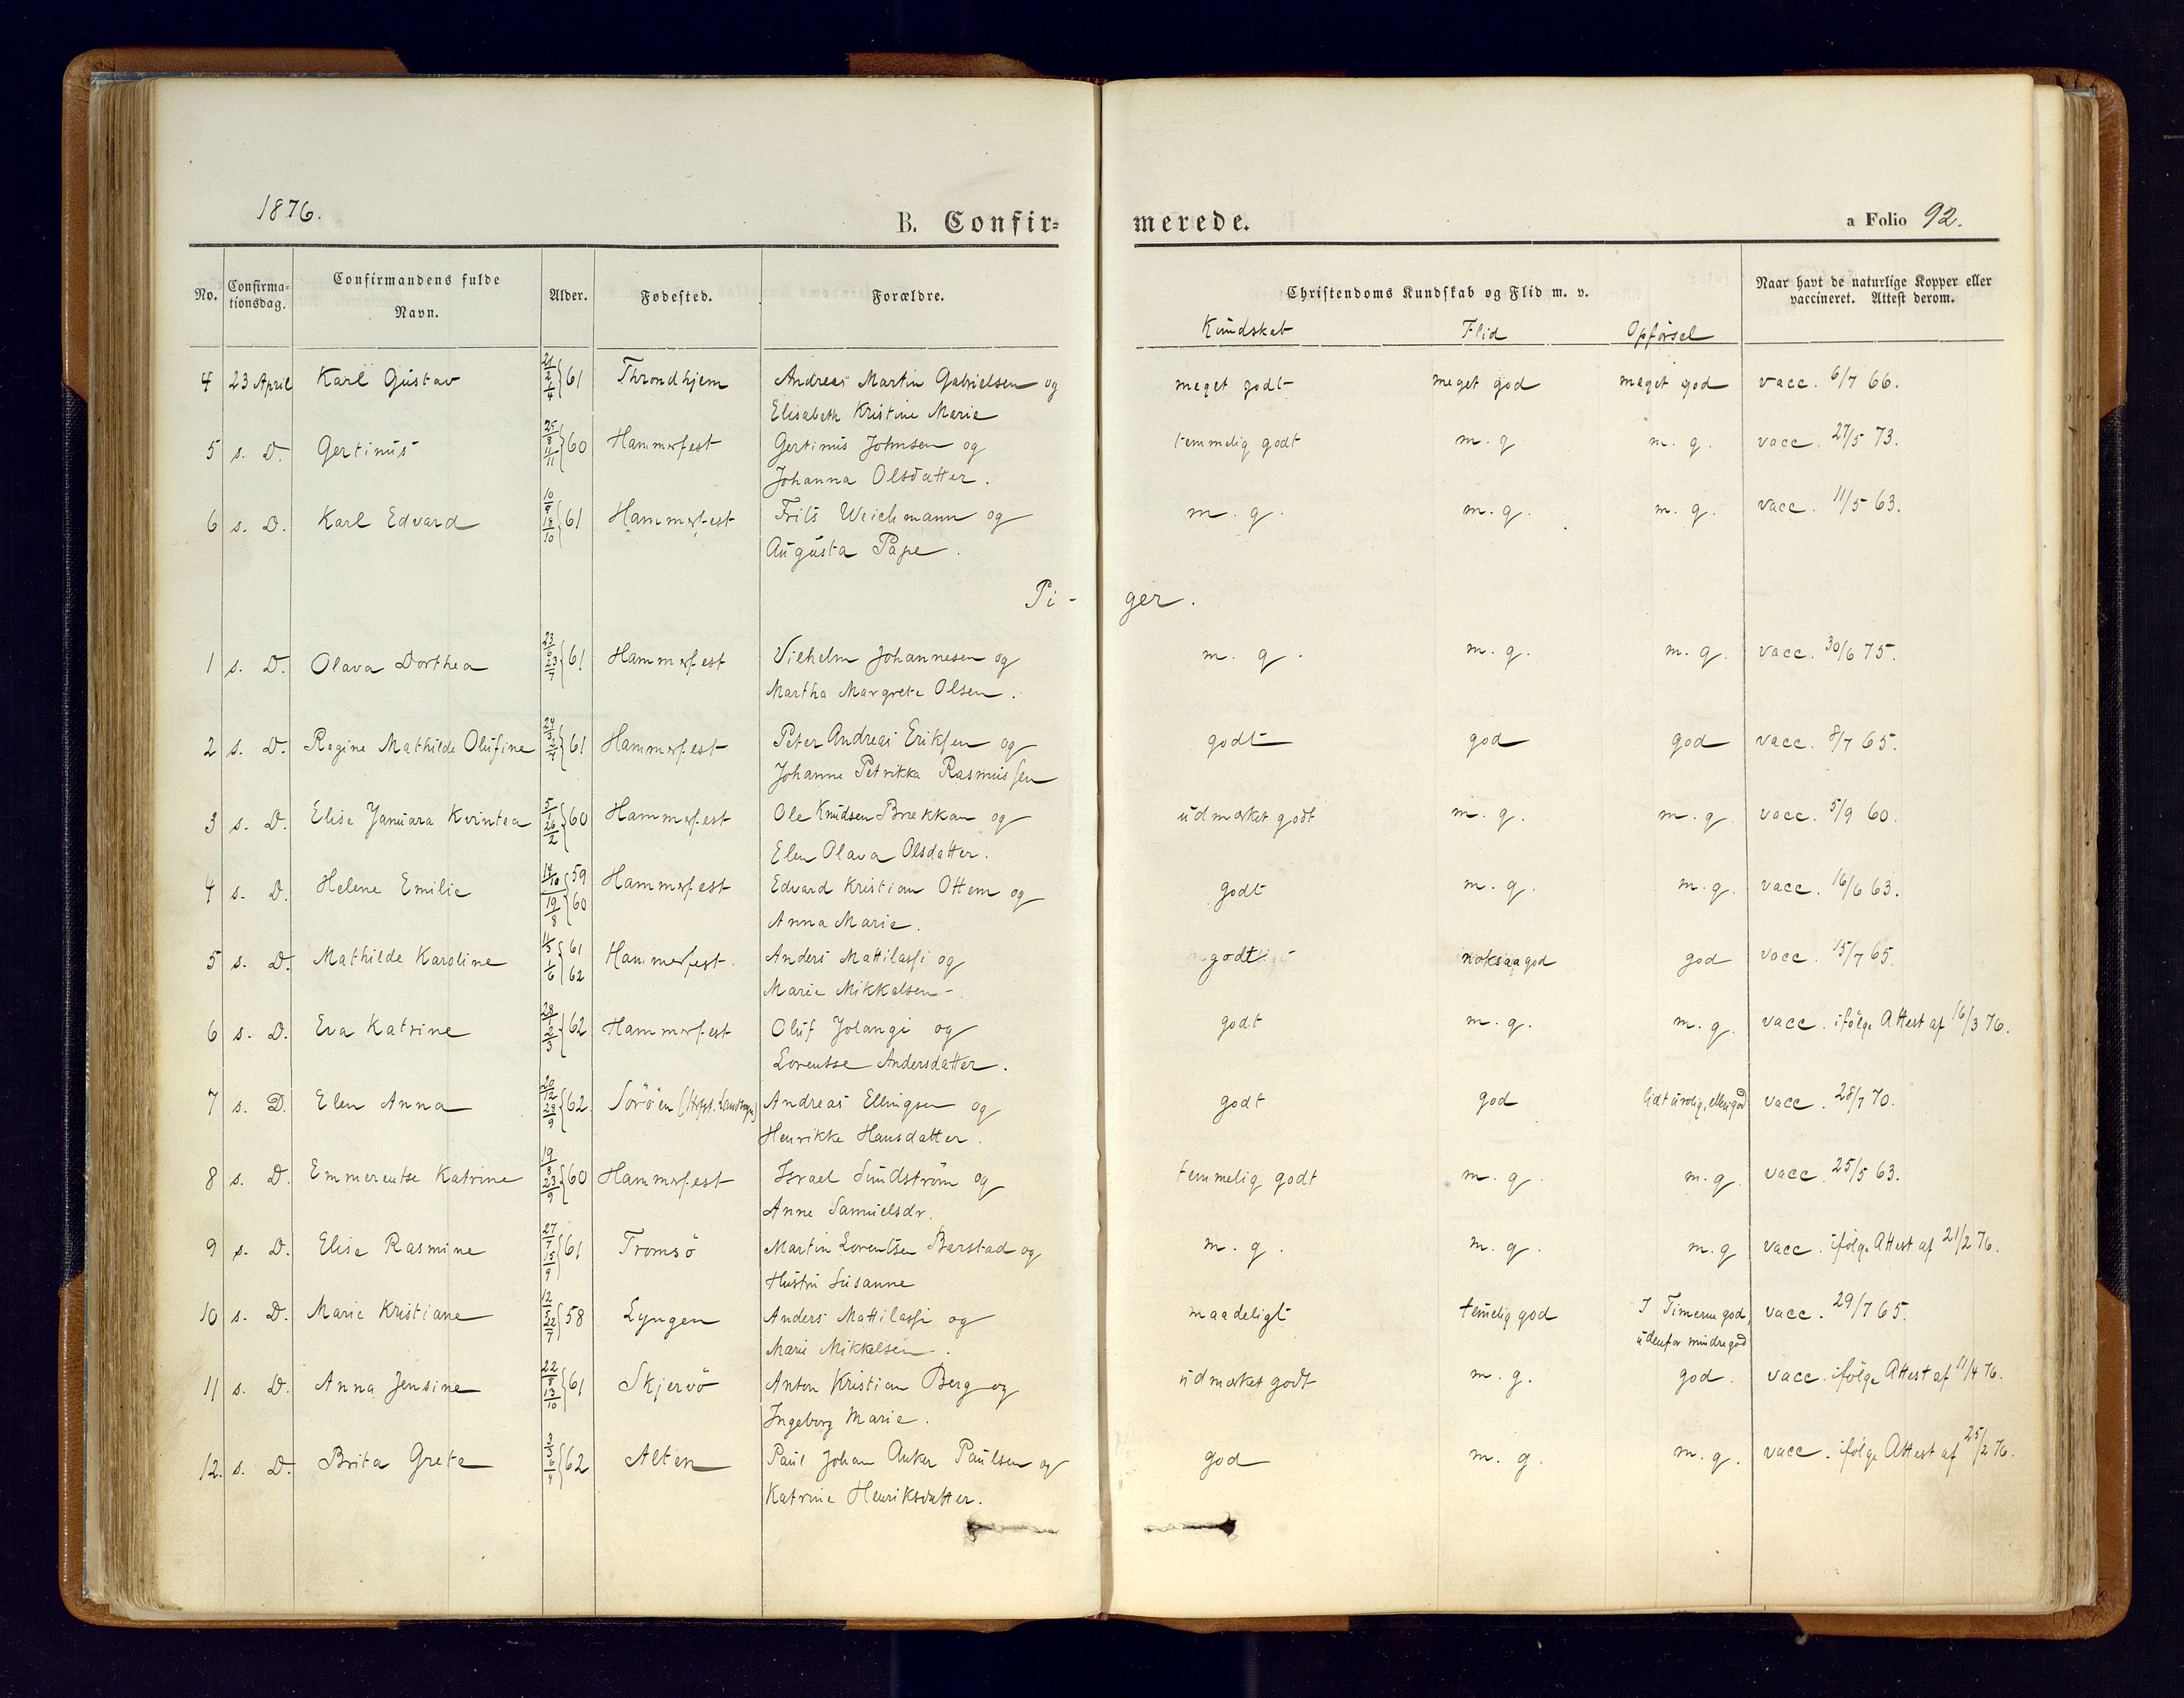 1876.
B. Confir= merede. a Folio 92.
No. Confirma-tionsdag. Confirmandens fulde Navn. Alder. Fødested. Forældre. Christendoms Kundskab og Flid m. v. Naar havt de naturlige Kopper eller vaccineret. Attest derom.
Kundskab Flid Opførsel
4 23 April Karl Gustav 21/2 2/4 } 61 Throndhjem Andreas Martin Gabrielsen og meget godt meget god meget god vacc. 6/7 66.
Elisabeth Kristine Marie
5 s. D. Gertinus 25/8 11/11 } 60 Hammerfest Gertinus Johnsen og temmelig godt m. g m. g. vacc. 27/5 73.
Johanna Olsdatter.
6 s. D. Karl Edvard 10/9 18/10 } 61 Hammerfest Frits Weichmann og m. g. m. g. m. g. vacc. 11/5 63.
Augusta Pape.
Pi - ger.
1 s. D. Olava Dorthea 23/6 23/7 } 61 Hammerfest Vilhelm Johannesen og m. g. m. g. m. g. vacc. 30/6 75.
Martha Margrete Olsen.
2 s. D. Regine Mathilde Olufine 24/3 2/4 } 61 Hammerfest Peter Andreas Eriksen og godt god god vacc. 8/7 65.
Johanne Petrikka Rasmussen
3 s. D. Elise Januara Kvintea 5/1 26/2 } 60 Hammerfest Ole Knudsen Brækkan og udmærket godt m. g. m. g. vacc. 5/9 60.
Elen Olava Olsdatter.
4 s. D. Helene Emilie 14/10 } 59 Hammerfest Edvard Kristian Ottem og godt m. g. m. g. vacc. 16/6 63.
19/8 } 60 Anna Marie.
5 s. D. Mathilde Karoline 11/3 } 61 Hammerfest. Anders Mattilassi og godt noksaa god god vacc. 15/7 65.
1/6 } 62 Marie Mikkelsen
6 s. D. Eva Katrine 28/1 2/3 } 62 Hammerfest Oluf Jolangi og godt m. g. m. g. vacc. ifølge Attest af 16/3 76.
Lorentse Andersdatter.
7 s. D. Elen Anna 20/12 28/9 } 62. Söröen Andreas Ellingsen og godt god lidt urolig, ellers god vacc. 28/7 70.
Henrikke Hansdatter.
8 s. D. Emmerentse Katrine 19/8 23/9 } 60 Hammerfest Israel Sundström og temmelig godt m. g. m. g. vacc. 25/5 63.
Anne Samuelsdr.
9 s. D. Elise Rasmine 27/7 15/9 } 61 Tromsö Martin Lorentsen Barstad og m. g. m. g. m. g vacc. ifølge Attest af 21/2 76.
Hustru Susanne
10 s. D. Marie Kristiane 12/5 22/7 } 58 Lyngen Anders Mattilassi og maadeligt temelig god I Timerne god, vacc. 29/7 65.
Marie Mikkelsen. udenfor mindre god
11 s. D. Anna Jensine 22/8 13/10 } 61 Skjervö Anton Kristian Berg og udmærket godt m. g. god. vacc. ifølge Attest af 11/4 76.
Ingeborg Marie.
12. s. D. Brita Grete 3/3 6/4 } 62 Alten Paul Johan Anker Paulsen og god m. g. m. g. vacc. ifølge Attest af 25/2 76.
Katrine Henriksdatter.